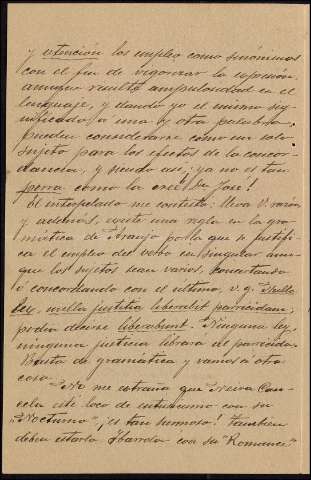 y atención los empleo como sinónimos
con el fin de vigorizar la expresión
aunque resulte ampulosidad en el
lenguaje, y dando yo el mismo sig-
nificado a una y otra palabra,
pueden considerarse como un solo
sujeto para los efectos de la concor-
dancia, y siendo así, ya no es tan
perra como la cree Dn José!
El interpelado me contesta: lleva V. razón
y además, existe una regla en la gra-
mática de Araujo por la que se justifi-
ca el empleo del verbo en singular aun-
que los sujetos sean varios, concertando
o concordando con el último, v. g. Nulla
lex, nulla justitia liberabit parricidam;
podía decirse liberabunt. Ninguna ley,
ninguna justicia librará al parricida.
Basta de gramática y vamos a otra
cosa.
No me extraña que Neira Can-
cela esté loco de entusiasmo con su
"Nocturno", ¡es tan hermoso! también
debe estarlo Ibarrola con su "Romance"